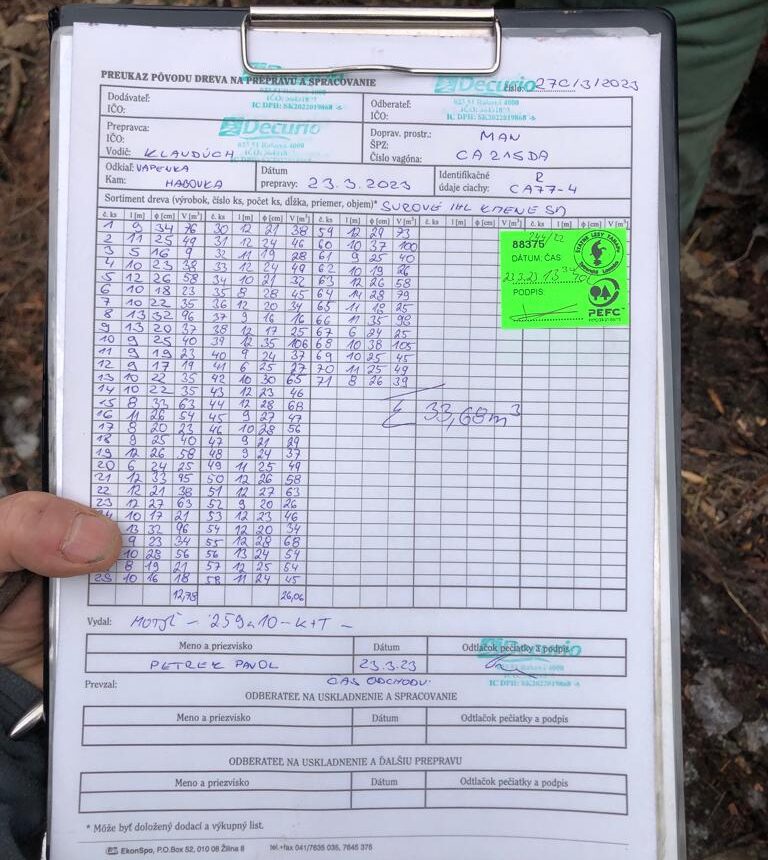 PREUKAZ PÔVODU DREVA NA PREPRAVU A SPRACOVANIE
Decurio
IČ DPH: SK2022019868 -6-
Decurio
023 51 Raková 4000
IČ DPH: SK2022019868 -6-
číslo: 27C/3/2023
Dodávateľ:
IČO:
Odberateľ:
IČO:
Prepravca:
IČO:
Vodič: KLAUDÚCH
Decurio
Doprav. prostr.: MAN
ŠPZ:
Číslo vagóna: CA 205DA
Odkiaľ: VAPENKA
Kam: HABOVKA
Dátum
prepravy: 23.3.2023
Identifikačné R
údaje ciachy: CA77-4
Sortiment dreva (výrobok, číslo ks, počet ks, dĺžka, priemer, objem)* SUROVÉ IHL KMENE SM
č. ks l [m] φ [cm] V [m³] č. ks l [m] φ [cm] V [m³] č. ks l [m] φ [cm] V [m³] č. ks l [m] φ [cm] V [m³] č. ks l [m] φ [cm] V [m³]
1 9 34 76 30 12 21 38 59 12 29 73
2 11 25 49 31 12 24 46 60 10 37 100
3 5 16 9 32 11 19 28 61 9 25 40
4 10 23 38 33 12 24 49 62 10 19 26
5 12 26 58 34 10 21 32 63 12 26 58
6 10 18 23 35 8 28 45 64 14 28 79
7 10 22 35 36 12 20 34 65 11 18 25
8 13 32 96 37 9 16 16 66 11 35 98
9 13 20 37 38 12 17 25 67 6 24 25
10 9 25 40 39 12 35 106 68 10 38 105
11 9 19 23 40 9 24 37 69 10 25 45
12 9 17 19 41 6 25 27 70 11 25 49
13 10 22 35 42 10 30 65 71 8 26 39
14 10 22 35 43 12 23 46
15 8 33 63 44 12 28 68
16 11 26 54 45 9 27 47
17 8 20 23 46 10 28 56
18 9 25 40 47 9 21 29
19 12 26 58 48 9 24 37
20 6 24 25 49 11 25 49
21 12 33 95 50 12 26 58
22 12 21 38 51 12 27 63
23 12 27 63 52 9 20 26
10 17 21 53 12 23 46
13 32 96 54 12 20 34
9 23 34 55 12 28 68
10 28 56 56 13 24 54
8 19 21 57 12 25 54
10 16 18 58 11 24 45
12,78 26,06
Σ 33,68 m³
244/22
88375
DÁTUM, ČAS:
23.3.23 13
PODPIS:
PEFC
Vydal: MOTÝĽ - 259a10 - K+T -
Meno a priezvisko Dátum Odtlačok pečiatky a podpis
PETREK PAVOL 23.3.23
Decurio
IČ DPH: SK2022019868 -6-
Prevzal: ČAS ODCHODU:
ODBERATEĽ NA USKLADNENIE A SPRACOVANIE
Meno a priezvisko Dátum Odtlačok pečiatky a podpis
ODBERATEĽ NA USKLADNENIE A ĎALŠIU PREPRAVU
Meno a priezvisko Dátum Odtlačok pečiatky a podpis
* Môže byť doložený dodací a výkupný list.
EkonSpo, P.O.Box 52, 010 08 Žilina 8 tel.+fax 041/7635 035, 7645 376